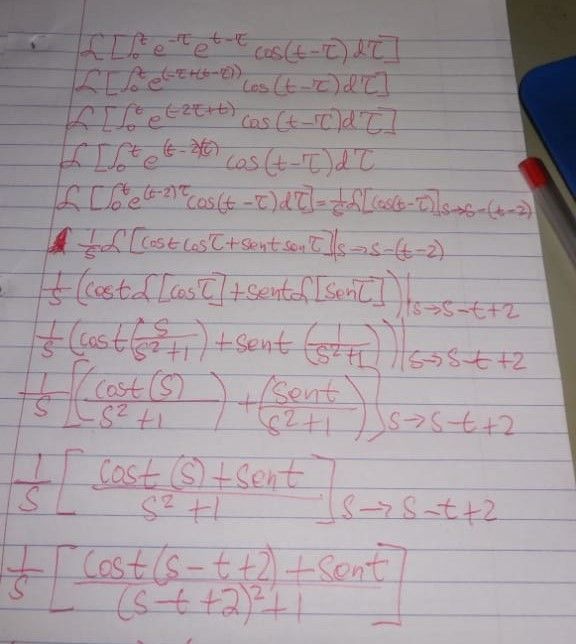 ℒ[∫₀ᵗ e^{-τ} e^{t-τ} cos(t-τ)dτ]
ℒ[∫₀ᵗ e^{(-τ+(t-τ))} cos(t-τ)dτ]
ℒ[∫₀ᵗ e^{(-2τ+t)} cos(t-τ)dτ]
ℒ[∫₀ᵗ e^{(t-2τ)} cos(t-τ)dτ
ℒ[∫₀ᵗ e^{(t-2)τ} cos(t-τ)dτ] = 1/s ℒ[cos(t-τ)]|s→s-(t-2)
1/s ℒ[cost cosτ + sent senτ]|s→s-(t-2)
1/s (cost ℒ[cosτ] + sent ℒ[senτ])|s→s-t+2
1/s (cost (s/(s²+1)) + sent (1/(s²+1)))|s→s-t+2
1/s [(cost(s)/(s²+1)) + (sent/(s²+1))] s→s-t+2
1/s [(cost(s)+sent)/(s²+1)] s→s-t+2
1/s [(cost(s-t+2)+sent)/((s-t+2)²+1)]